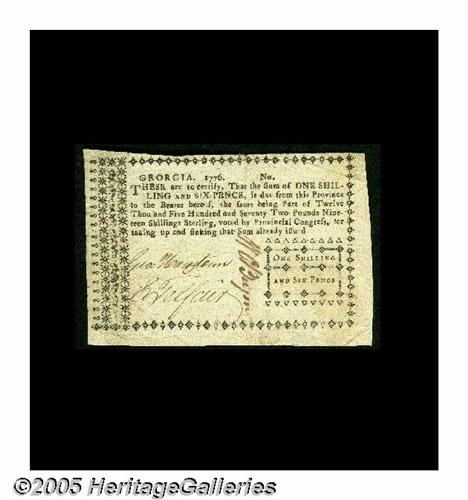 GEORGIA. 1776. No.
THESE are to certify, That the Sum of ONE SHIL-
LING AND SIX PENCE, is due from this Province
to the Bearer hereof, the same being Part of Twelve
Thousand Five Hundred and Seventy Two Pounds Nine-
teen Shillings Sterling, voted by Provincial Congress, for
taking up and sinking that Sum already issu'd
ONE SHILLING
AND SIX PENCE
©2005 HeritageGalleries